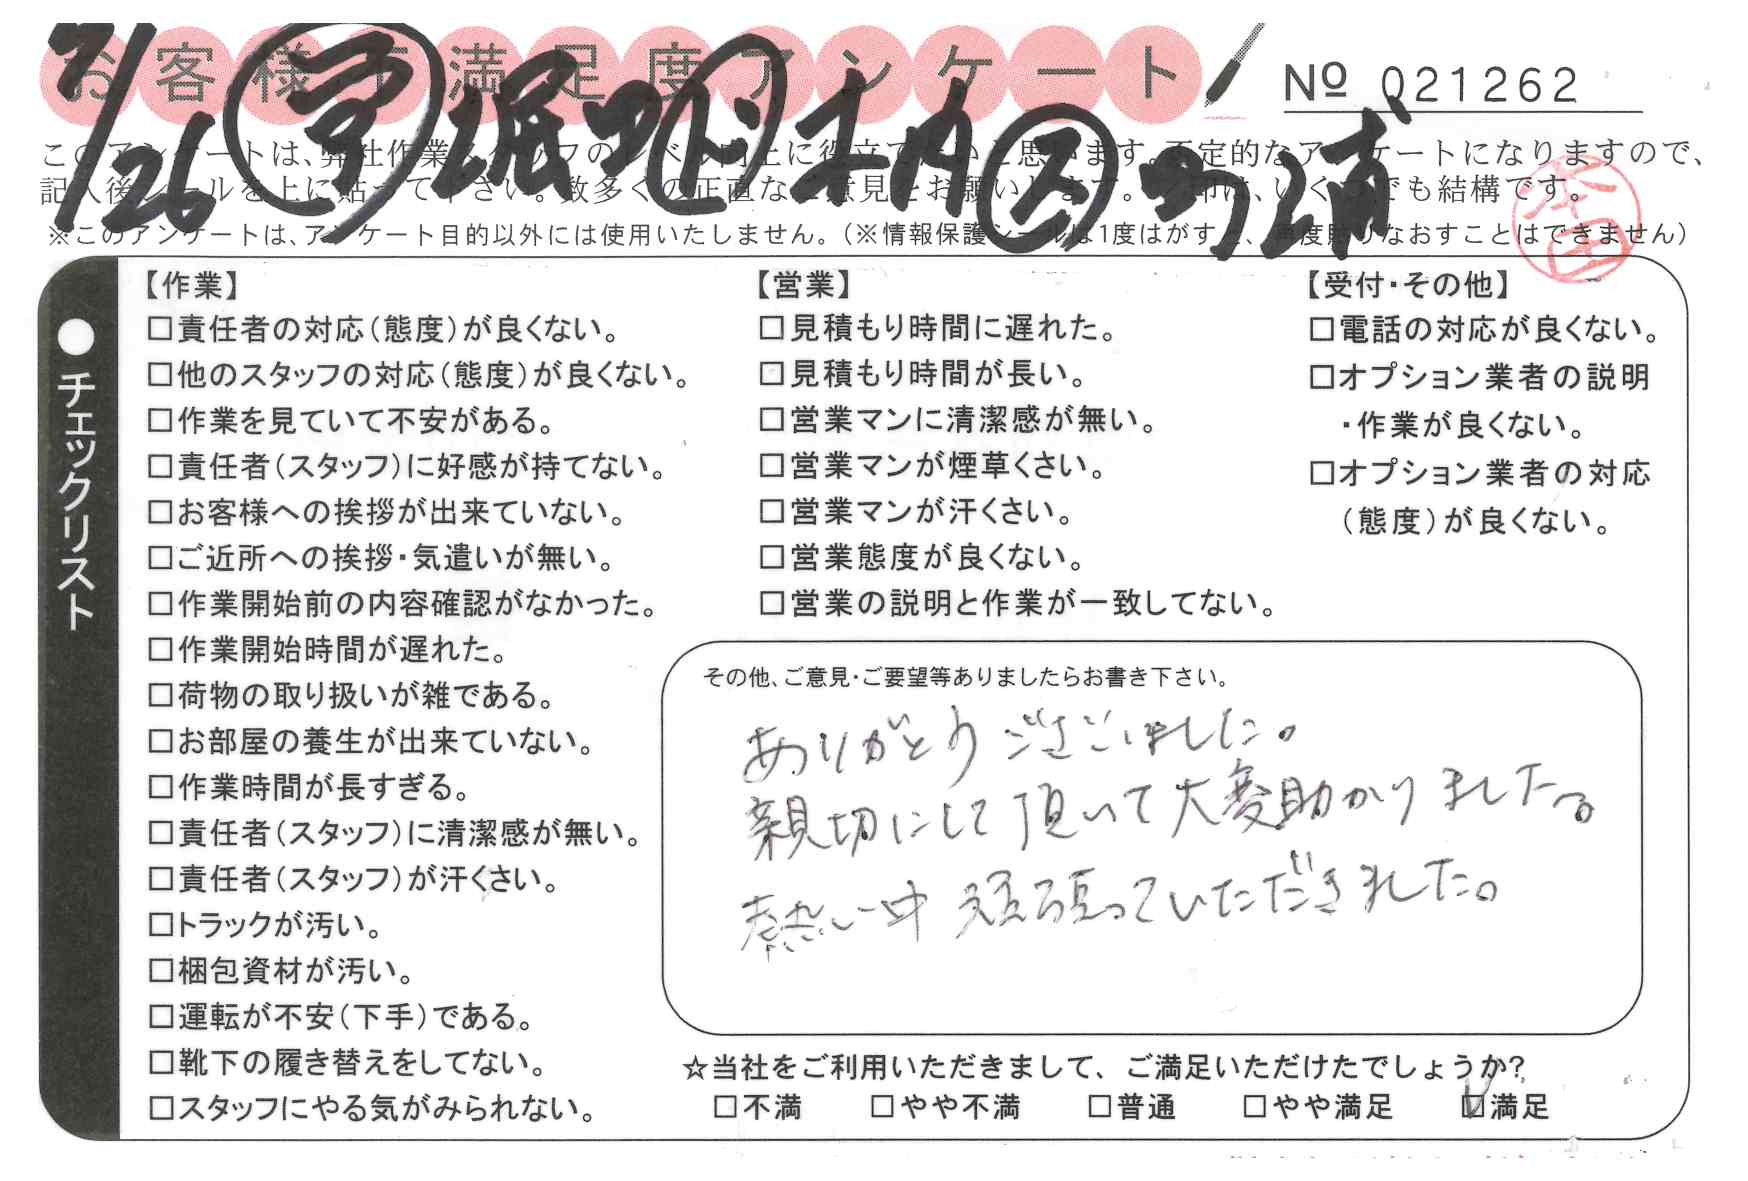 お客様不満足度アンケート
№ 021262
7/26 堀 木内 町浦
このアンケートは、弊社作業スタッフのレベル向上に役立てたいと思います。否定的なアンケートになりますので、
記入後シールを上に貼って下さい。数多くの正直なご意見をお願いします。レ印は、いくつでも結構です。
※このアンケートは、アンケート目的以外には使用いたしません。(※情報保護シールは1度はがすと、再度貼りなおすことはできません)
●チェックリスト
【作業】
□責任者の対応(態度)が良くない。
□他のスタッフの対応(態度)が良くない。
□作業を見ていて不安がある。
□責任者(スタッフ)に好感が持てない。
□お客様への挨拶が出来ていない。
□ご近所への挨拶・気遣いが無い。
□作業開始前の内容確認がなかった。
□作業開始時間が遅れた。
□荷物の取り扱いが雑である。
□お部屋の養生が出来ていない。
□作業時間が長すぎる。
□責任者(スタッフ)に清潔感が無い。
□責任者(スタッフ)が汗くさい。
□トラックが汚い。
□梱包資材が汚い。
□運転が不安(下手)である。
□靴下の履き替えをしてない。
□スタッフにやる気がみられない。
【営業】
□見積もり時間に遅れた。
□見積もり時間が長い。
□営業マンに清潔感が無い。
□営業マンが煙草くさい。
□営業マンが汗くさい。
□営業態度が良くない。
□営業の説明と作業が一致してない。
【受付・その他】
□電話の対応が良くない。
□オプション業者の説明
・作業が良くない。
□オプション業者の対応
(態度)が良くない。
その他、ご意見・ご要望等ありましたらお書き下さい。
ありがとうございました。
親切にして頂いて大変助かりました。
熱い中頑張っていただきました。
☆当社をご利用いただきまして、ご満足いただけたでしょうか?
□不満 □やや不満 □普通 □やや満足 ☑満足